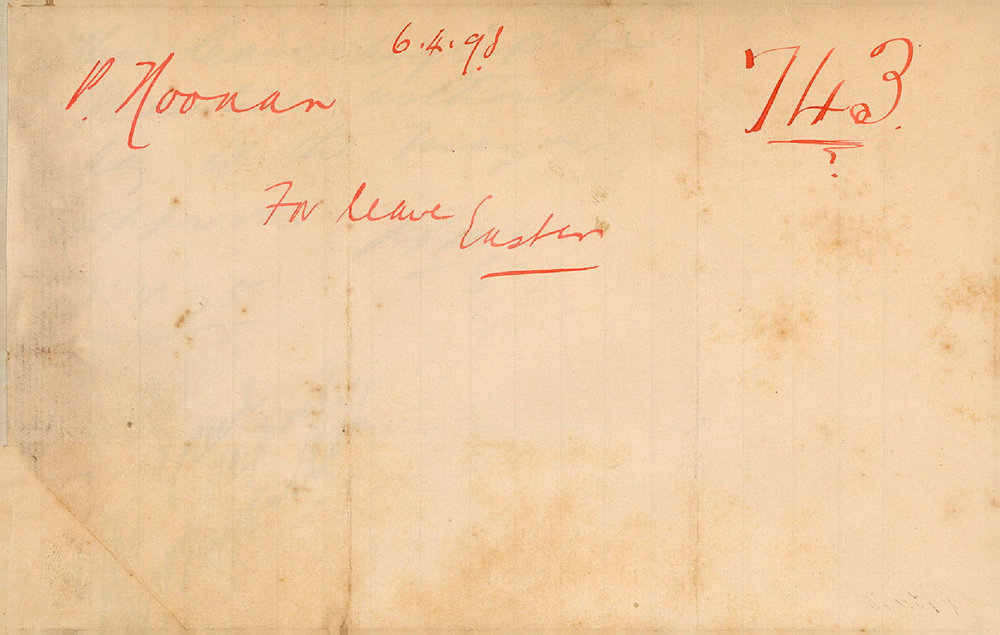 6.4.98
P. Noonan
743
?
For leave Easter